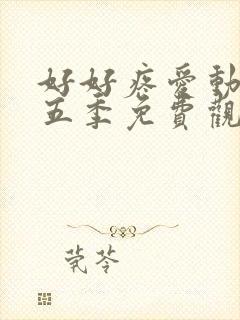 好好疼愛動
五季免費觀
茺苓